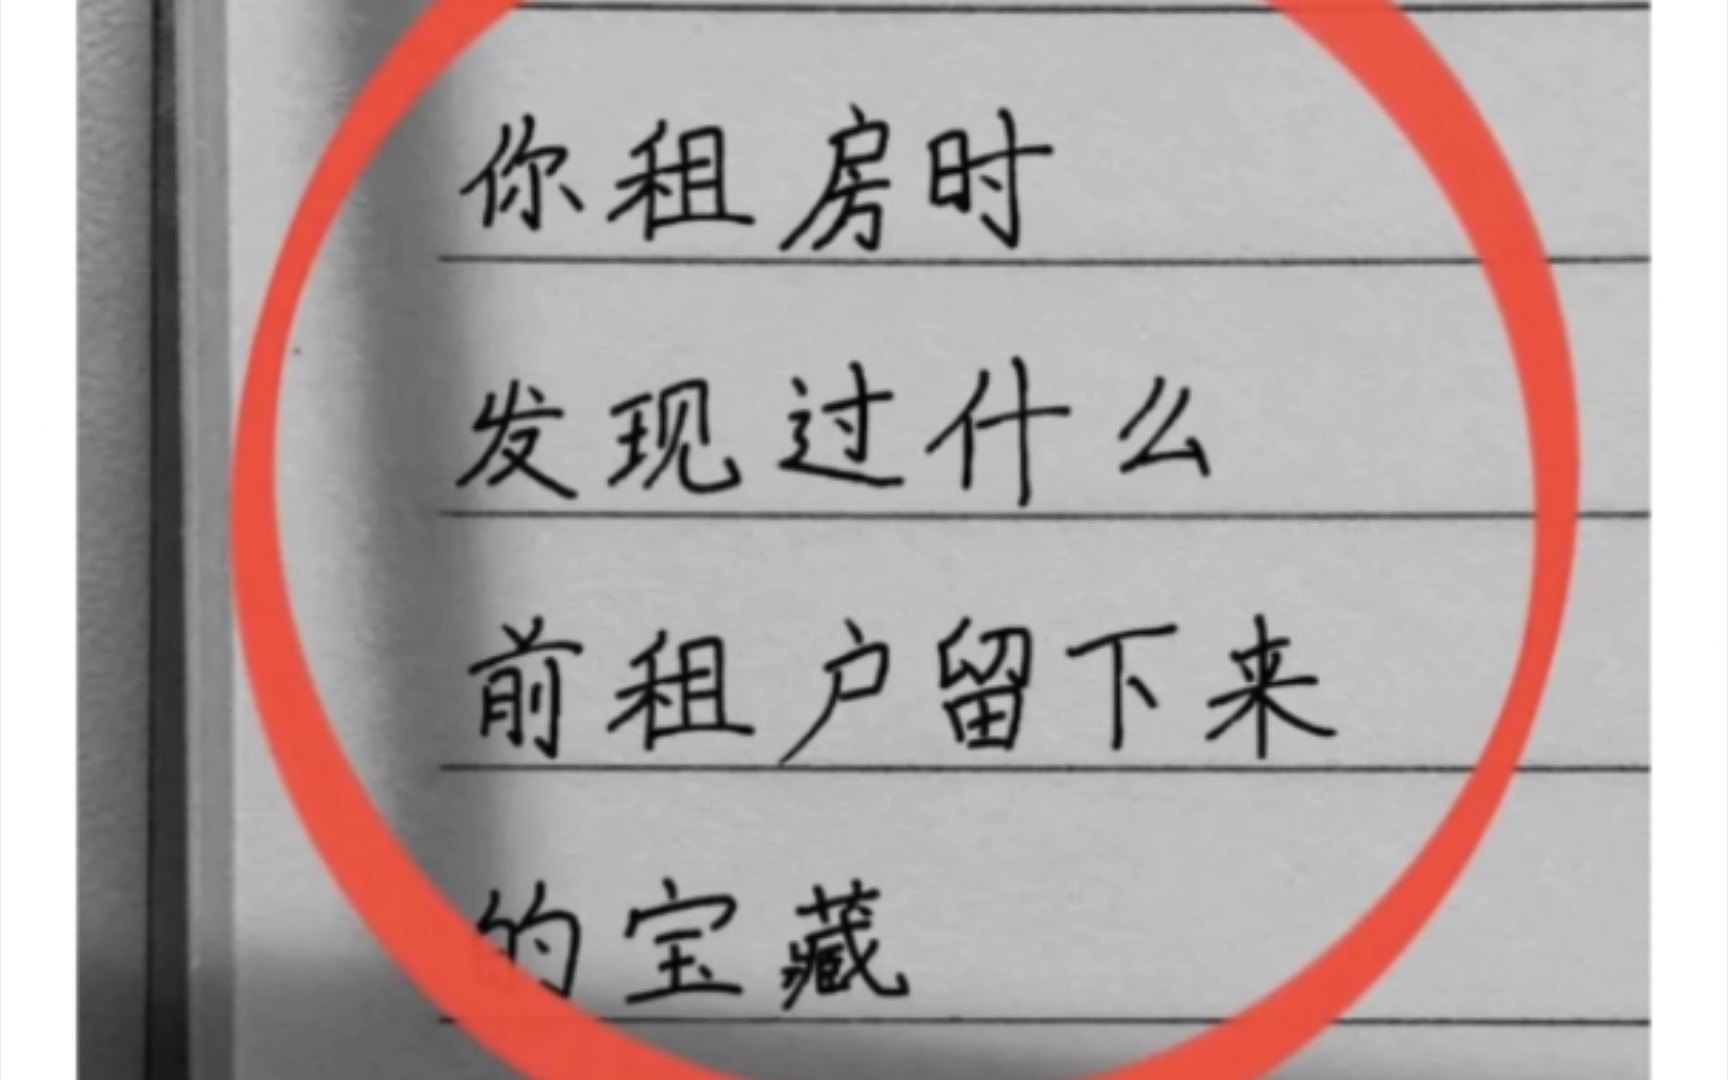 你租房时
发现过什么
前租户留下来
的宝藏